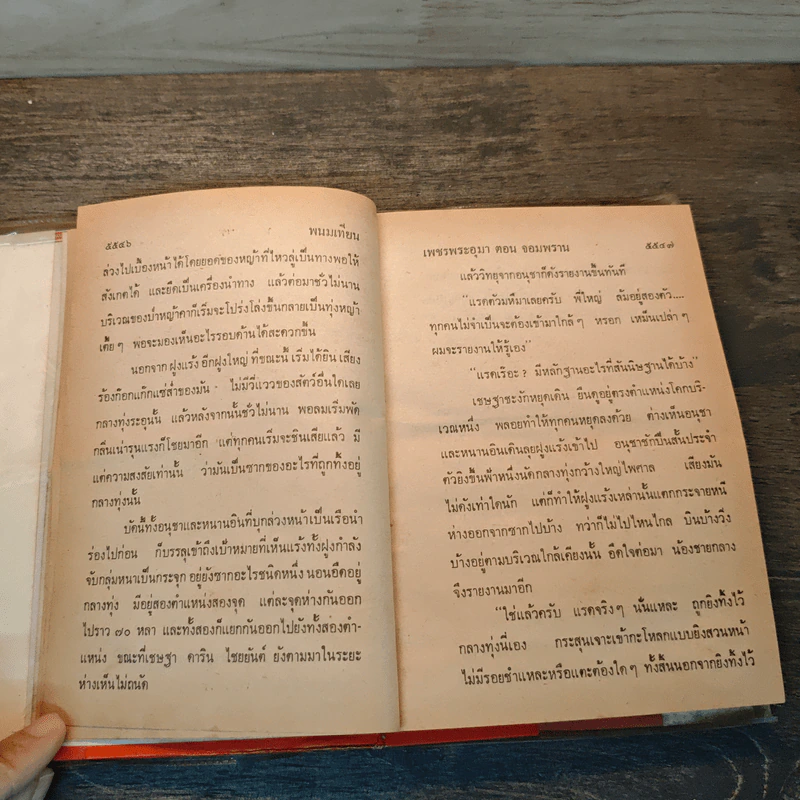 ๕๕๔๖ พนมเทียน
ล่วงไปเบื้องหน้าได้โดยยอดของหญ้าที่ไหวลู่เป็นทางพอให้
สังเกตได้ และยึดเป็นเครื่องนำทาง แล้วต่อมาชั่วไม่นาน
บริเวณของป่าหญ้าคาก็เริ่มจะโปร่งโล่งขึ้นกลายเป็นทุ่งหญ้า
เตี้ย ๆ พอจะมองเห็นอะไรรอบด้านได้สะดวกขึ้น
นอกจากฝูงแร้งอีกฝูงใหญ่ ที่ขณะนี้เริ่มได้ยินเสียง
ร้องก๊อกแก๊กแซ่ส่ำของมัน ไม่มีวี่แววของสัตว์อื่นใดเลย
กลางทุ่งระอุนั้น แล้วหลังจากนั้นชั่วไม่นาน พอลมเริ่มพัด
กลิ่นเน่ารุนแรงก็โชยมาอีก แต่ทุกคนเริ่มจะชินเสียแล้ว มี
แต่ความสงสัยเท่านั้น ว่ามันเป็นซากของอะไรที่ถูกทิ้งอยู่
กลางทุ่งนั้น
บัดนี้ทั้งอนุชาและหนานอินที่บุกล่วงหน้าเป็นเรือนำ
ร่องไปก่อน ก็บรรลุเข้าถึงเป้าหมายที่เห็นแร้งทั้งฝูงกำลัง
จับกลุ่มหนาเป็นกระจุก อยู่ยังซากอะไรชนิดหนึ่ง นอนอืดอยู่
กลางทุ่ง มีอยู่สองตำแหน่งสองจุด แต่ละจุดห่างกันออก
ไปราว ๗๐ หลา และทั้งสองก็แยกกันออกไปยังทั้งสองตำ-
แหน่ง ขณะที่เชษฐา ดาริน ไชยยันต์ ยังตามมาในระยะ
ห่างเห็นไม่ถนัด
เพชรพระอุมา ตอน จอมพราน ๕๕๔๗
แล้ววิทยุจากอนุชาก็ดังรายงานขึ้นทันที
“แรดตัวมหึมาเลยครับ พี่ใหญ่ ล้มอยู่สองตัว....
ทุกคนไม่จำเป็นจะต้องเข้ามาใกล้ ๆ หรอก เหม็นเปล่า ๆ
ผมจะรายงานให้รู้เอง”
“แรดเรือะ ? มีหลักฐานอะไรที่สันนิษฐานได้บ้าง”
เชษฐาชะงักหยุดเดิน ยืนดูอยู่ตรงตำแหน่งโคกบริ-
เวณหนึ่ง พลอยทำให้ทุกคนหยุดลงด้วย ต่างเห็นอนุชา
และหนานอินเดินลุยฝูงแร้งเข้าไป อนุชาชักปืนสั้นประจำ
ตัวยิงขึ้นฟ้าหนึ่งนัดกลางทุ่งกว้างใหญ่ไพศาล เสียงมัน
ไม่ดังเท่าใดนัก แต่ก็ทำให้ฝูงแร้งเหล่านั้นแตกกระจายหนี
ห่างออกจากซากไปบ้าง ทว่าก็ไม่ไปไหนไกล บินบ้างวิ่ง
บ้างอยู่ตามบริเวณใกล้เคียงนั้น อึดใจต่อมา น้องชายกลาง
จึงรายงานมาอีก
“ใช่แล้วครับ แรดจริง ๆ นั่นแหละ ถูกยิงทิ้งไว้
กลางทุ่งนี่เอง กระสุนเจาะเข้ากะโหลกแบบยิงสวนหน้า
ไม่มีรอยชำแหละหรือแตะต้องใด ๆ ทั้งสิ้นนอกจากยิงทิ้งไว้